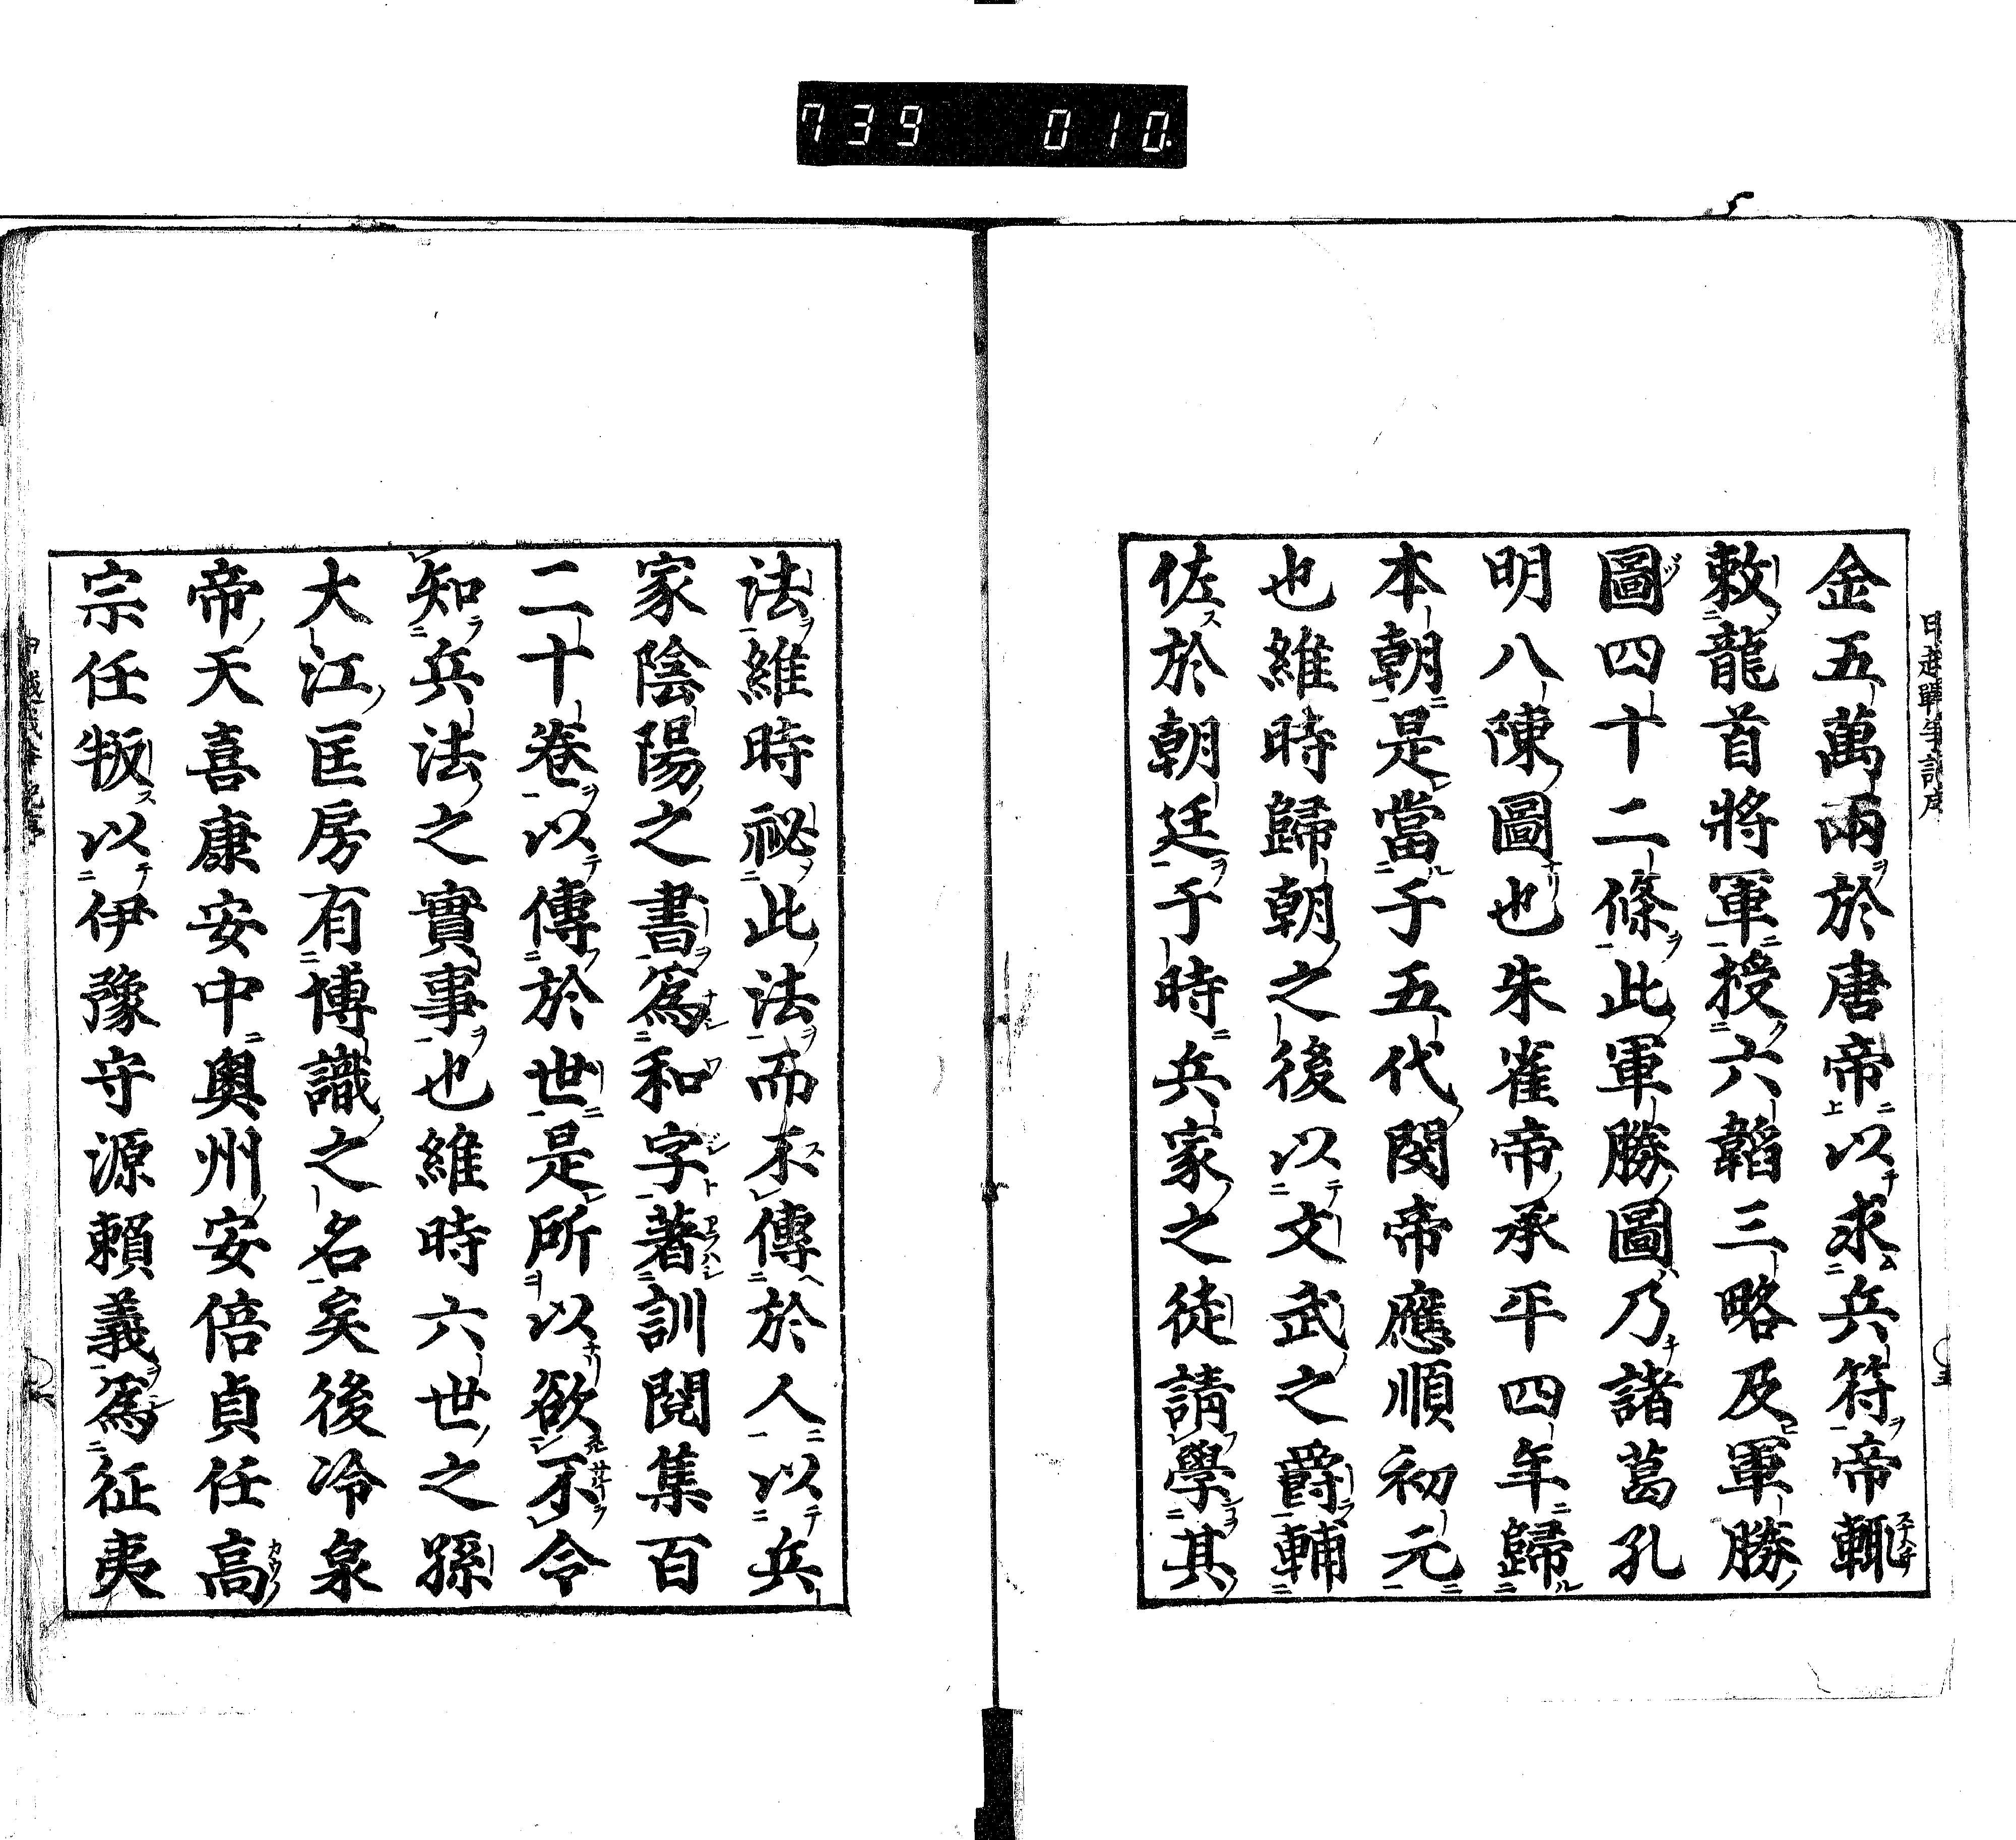 739 010
金五萬兩於唐帝以求兵符帝輙
敕龍首將軍授六韜三略及軍勝
圖四十二條此軍勝圖乃諸葛孔
明八陳圖也朱雀帝承平四年歸
本朝是當于五代閔帝應順初元
也維時歸朝之後以文武之爵輔
佐於朝廷于時兵家之徒請學其
法維時祕此法而不傳於人以兵
家陰陽之書爲和字著訓閱集百
二十卷以傳於世是所以欲不令
知兵法之實事也維時六世之孫
大江匡房有博識之名矣後冷泉
帝天喜康安中奧州安倍貞任高
宗任叛以伊豫守源賴義爲征夷